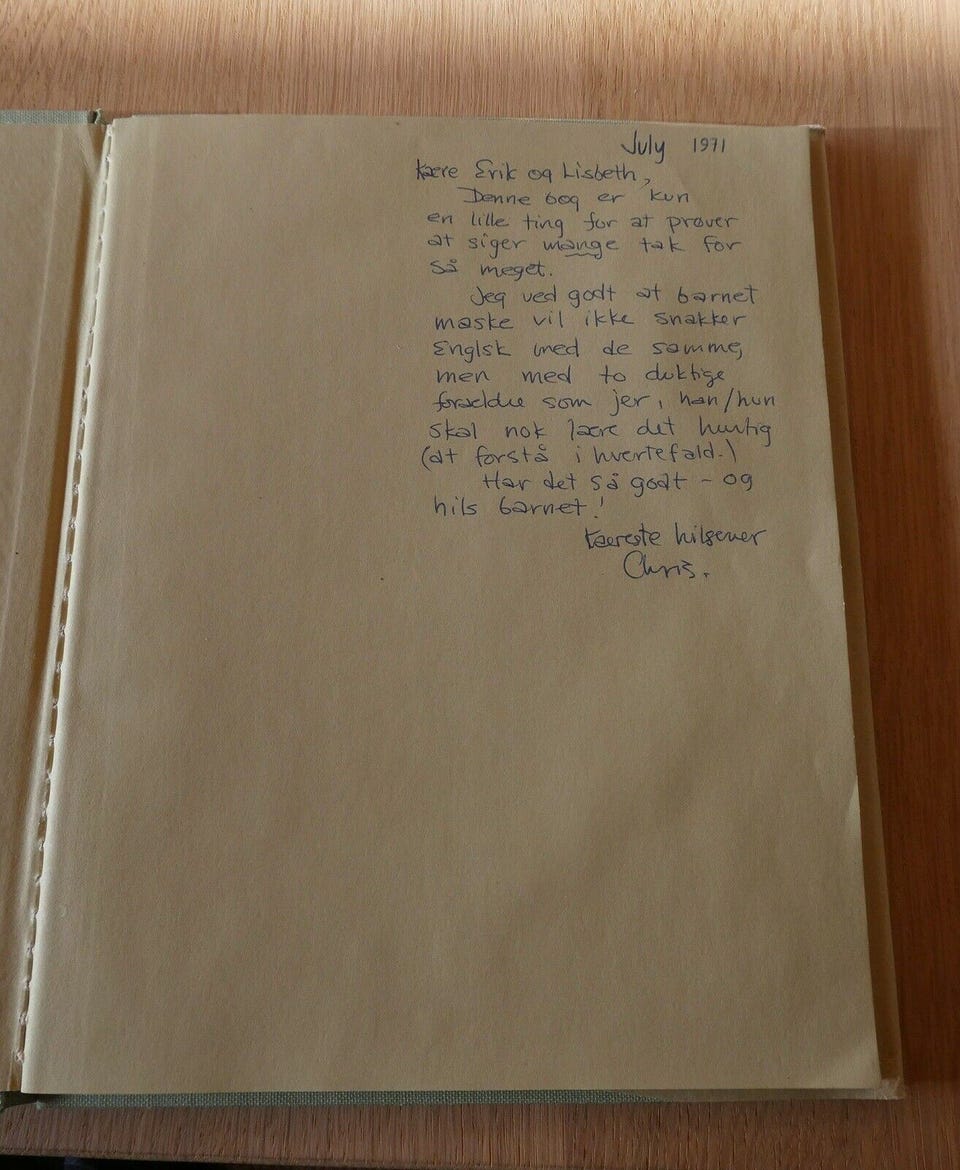 July 1971
Kære Erik og Lisbeth,
Denne bog er kun
en lille ting for at prøver
at siger mange tak for
så meget.
Jeg ved godt at barnet
måske vil ikke snakker
Englsk med de samme,
men med to duktige
forældre som jer, han/hun
skal nok lære det hurtig
(at forstå i hvertefald.)
Har det så godt - og
hils barnet!
Kæreste hilsener
Chris.